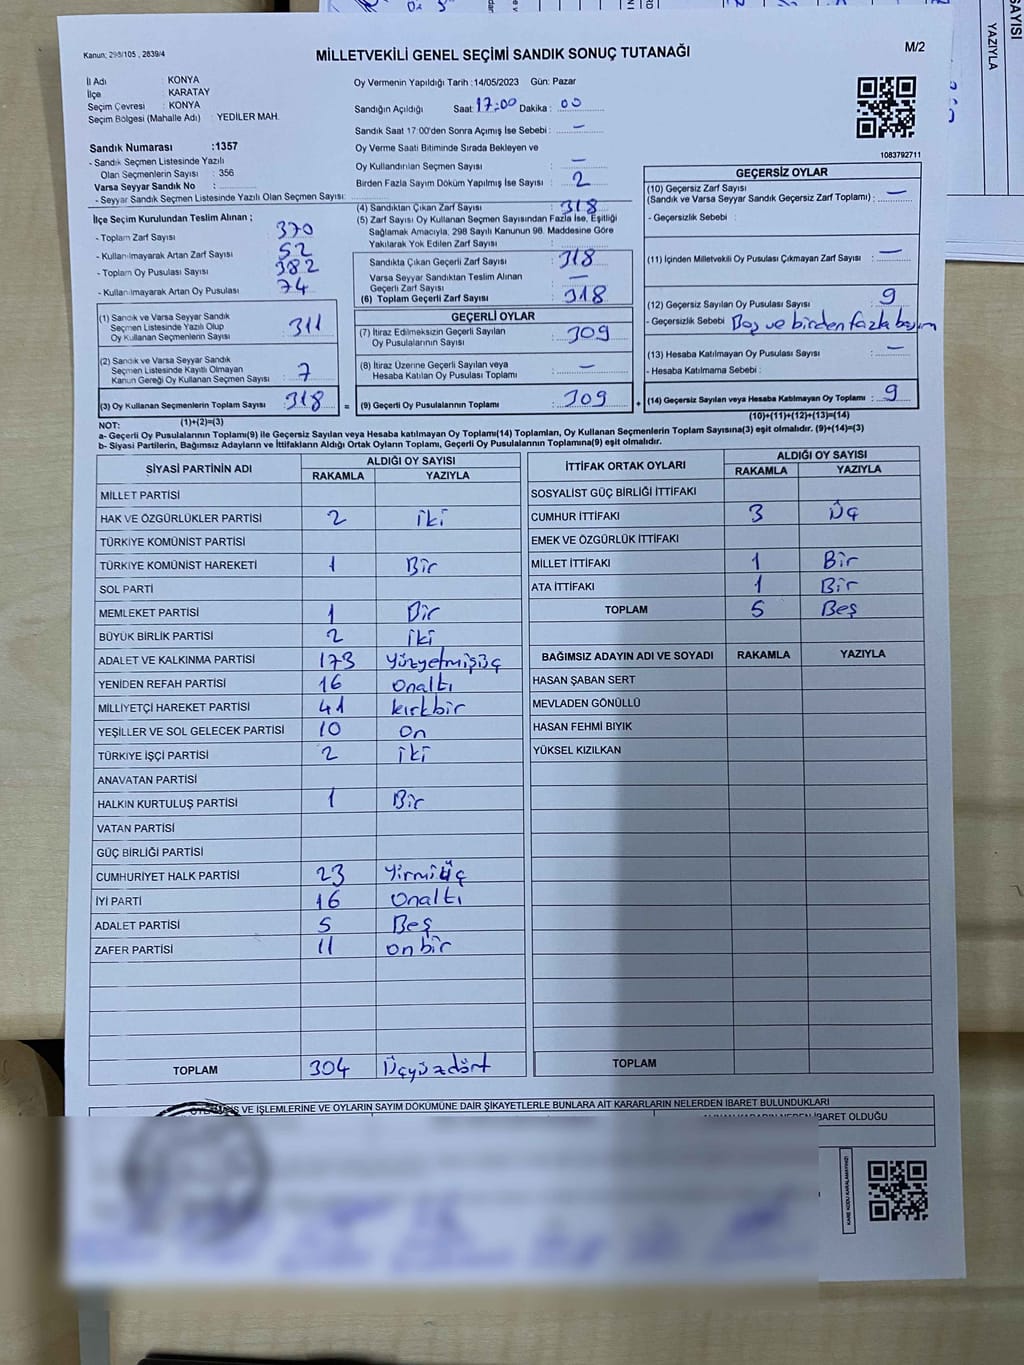 Kanun: 298/105 , 2839/4
MİLLETVEKİLİ GENEL SEÇİMİ SANDIK SONUÇ TUTANAĞI
M/2
İl Adı : KONYA
İlçe : KARATAY
Seçim Çevresi : KONYA
Seçim Bölgesi (Mahalle Adı) : YEDİLER MAH.
Sandık Numarası :1357
- Sandık Seçmen Listesinde Yazılı
Olan Seçmenlerin Sayısı : 356
Varsa Seyyar Sandık No :
- Seyyar Sandık Seçmen Listesinde Yazılı Olan Seçmen Sayısı:
Oy Vermenin Yapıldığı Tarih :14/05/2023 Gün: Pazar
Sandığın Açıldığı Saat: 17:00 Dakika : 00
Sandık Saat 17:00'den Sonra Açımış İse Sebebi : —
Oy Verme Saati Bitiminde Sırada Bekleyen ve
Oy Kullandırılan Seçmen Sayısı : —
Birden Fazla Sayım Döküm Yapılmış İse Sayısı : 2
1083792711
İlçe Seçim Kurulundan Teslim Alınan ;
- Toplam Zarf Sayısı : 370
- Kullanılmayarak Artan Zarf Sayısı : 52
- Toplam Oy Pusulası Sayısı : 382
- Kullanılmayarak Artan Oy Pusulası : 74
(1) Sandık ve Varsa Seyyar Sandık
Seçmen Listesinde Yazılı Olup
Oy Kullanan Seçmenlerin Sayısı : 311
(2) Sandık ve Varsa Seyyar Sandık
Seçmen Listesinde Kayıtlı Olmayan
Kanun Gereği Oy Kullanan Seçmen Sayısı : 7
(3) Oy Kullanan Seçmenlerin Toplam Sayısı : 318
(4) Sandıktan Çıkan Zarf Sayısı : 318
(5) Zarf Sayısı Oy Kullanan Seçmen Sayısından Fazla İse, Eşitliği
Sağlamak Amacıyla, 298 Sayılı Kanunun 98. Maddesine Göre
Yakılarak Yok Edilen Zarf Sayısı :
Sandıkta Çıkan Geçerli Zarf Sayısı : 318
Varsa Seyyar Sandıktan Teslim Alınan
Geçerli Zarf Sayısı : —
(6) Toplam Geçerli Zarf Sayısı : 318
GEÇERLİ OYLAR
(7) İtiraz Edilmeksizin Geçerli Sayılan
Oy Pusulalarının Sayısı : 309
(8) İtiraz Üzerine Geçerli Sayılan veya
Hesaba Katılan Oy Pusulası Toplamı : —
= (9) Geçerli Oy Pusulalarının Toplamı : 309
GEÇERSİZ OYLAR
(10) Geçersiz Zarf Sayısı
(Sandık ve Varsa Seyyar Sandık Geçersiz Zarf Toplamı) : —
- Geçersizlik Sebebi :
(11) İçinden Milletvekili Oy Pusulası Çıkmayan Zarf Sayısı : —
(12) Geçersiz Sayılan Oy Pusulası Sayısı : 9
- Geçersizlik Sebebi : Boş ve birden fazla basım
(13) Hesaba Katılmayan Oy Pusulası Sayısı : —
- Hesaba Katılmama Sebebi :
+ (14) Geçersiz Sayılan veya Hesaba Katılmayan Oy Toplamı : 9
NOT: (1)+(2)=(3)
(10)+(11)+(12)+(13)=(14)
a- Geçerli Oy Pusulalarının Toplamı(9) ile Geçersiz Sayılan veya Hesaba katılmayan Oy Toplamı(14) Toplamları, Oy Kullanan Seçmenlerin Toplam Sayısına(3) eşit olmalıdır. (9)+(14)=(3)
b- Siyasi Partilerin, Bağımsız Adayların ve İttifakların Aldığı Ortak Oyların Toplamı, Geçerli Oy Pusulalarının Toplamına(9) eşit olmalıdır.
SİYASİ PARTİNİN ADI ALDIĞI OY SAYISI
RAKAMLA YAZIYLA
MİLLET PARTİSİ
HAK VE ÖZGÜRLÜKLER PARTİSİ 2 iki
TÜRKİYE KOMÜNİST PARTİSİ
TÜRKİYE KOMÜNİST HAREKETİ 1 Bir
SOL PARTİ
MEMLEKET PARTİSİ 1 Bir
BÜYÜK BİRLİK PARTİSİ 2 iki
ADALET VE KALKINMA PARTİSİ 173 Yüzyetmişüç
YENİDEN REFAH PARTİSİ 16 Onaltı
MİLLİYETÇİ HAREKET PARTİSİ 41 kırkbir
YEŞİLLER VE SOL GELECEK PARTİSİ 10 On
TÜRKİYE İŞÇİ PARTİSİ 2 iki
ANAVATAN PARTİSİ
HALKIN KURTULUŞ PARTİSİ 1 Bir
VATAN PARTİSİ
GÜÇ BİRLİĞİ PARTİSİ
CUMHURİYET HALK PARTİSİ 23 Yirmiüç
İYİ PARTİ 16 Onaltı
ADALET PARTİSİ 5 Beş
ZAFER PARTİSİ 11 onbir
TOPLAM 304 Üçyüzdört
İTTİFAK ORTAK OYLARI ALDIĞI OY SAYISI
RAKAMLA YAZIYLA
SOSYALİST GÜÇ BİRLİĞİ İTTİFAKI
CUMHUR İTTİFAKI 3 Üç
EMEK VE ÖZGÜRLÜK İTTİFAKI
MİLLET İTTİFAKI 1 Bir
ATA İTTİFAKI 1 Bir
TOPLAM 5 Beş
BAĞIMSIZ ADAYIN ADI VE SOYADI RAKAMLA YAZIYLA
HASAN ŞABAN SERT
MEVLADEN GÖNÜLLÜ
HASAN FEHMİ BIYIK
YÜKSEL KIZILKAN
TOPLAM
VE İŞLEMLERİNE VE OYLARIN SAYIM DÖKÜMÜNE DAİR ŞİKAYETLERLE BUNLARA AİT KARARLARIN NELERDEN İBARET BULUNDUKLARI
İBARET OLDUĞU
KARE KODU KARALAMAYINIZ!
SAYISI
YAZIYLA